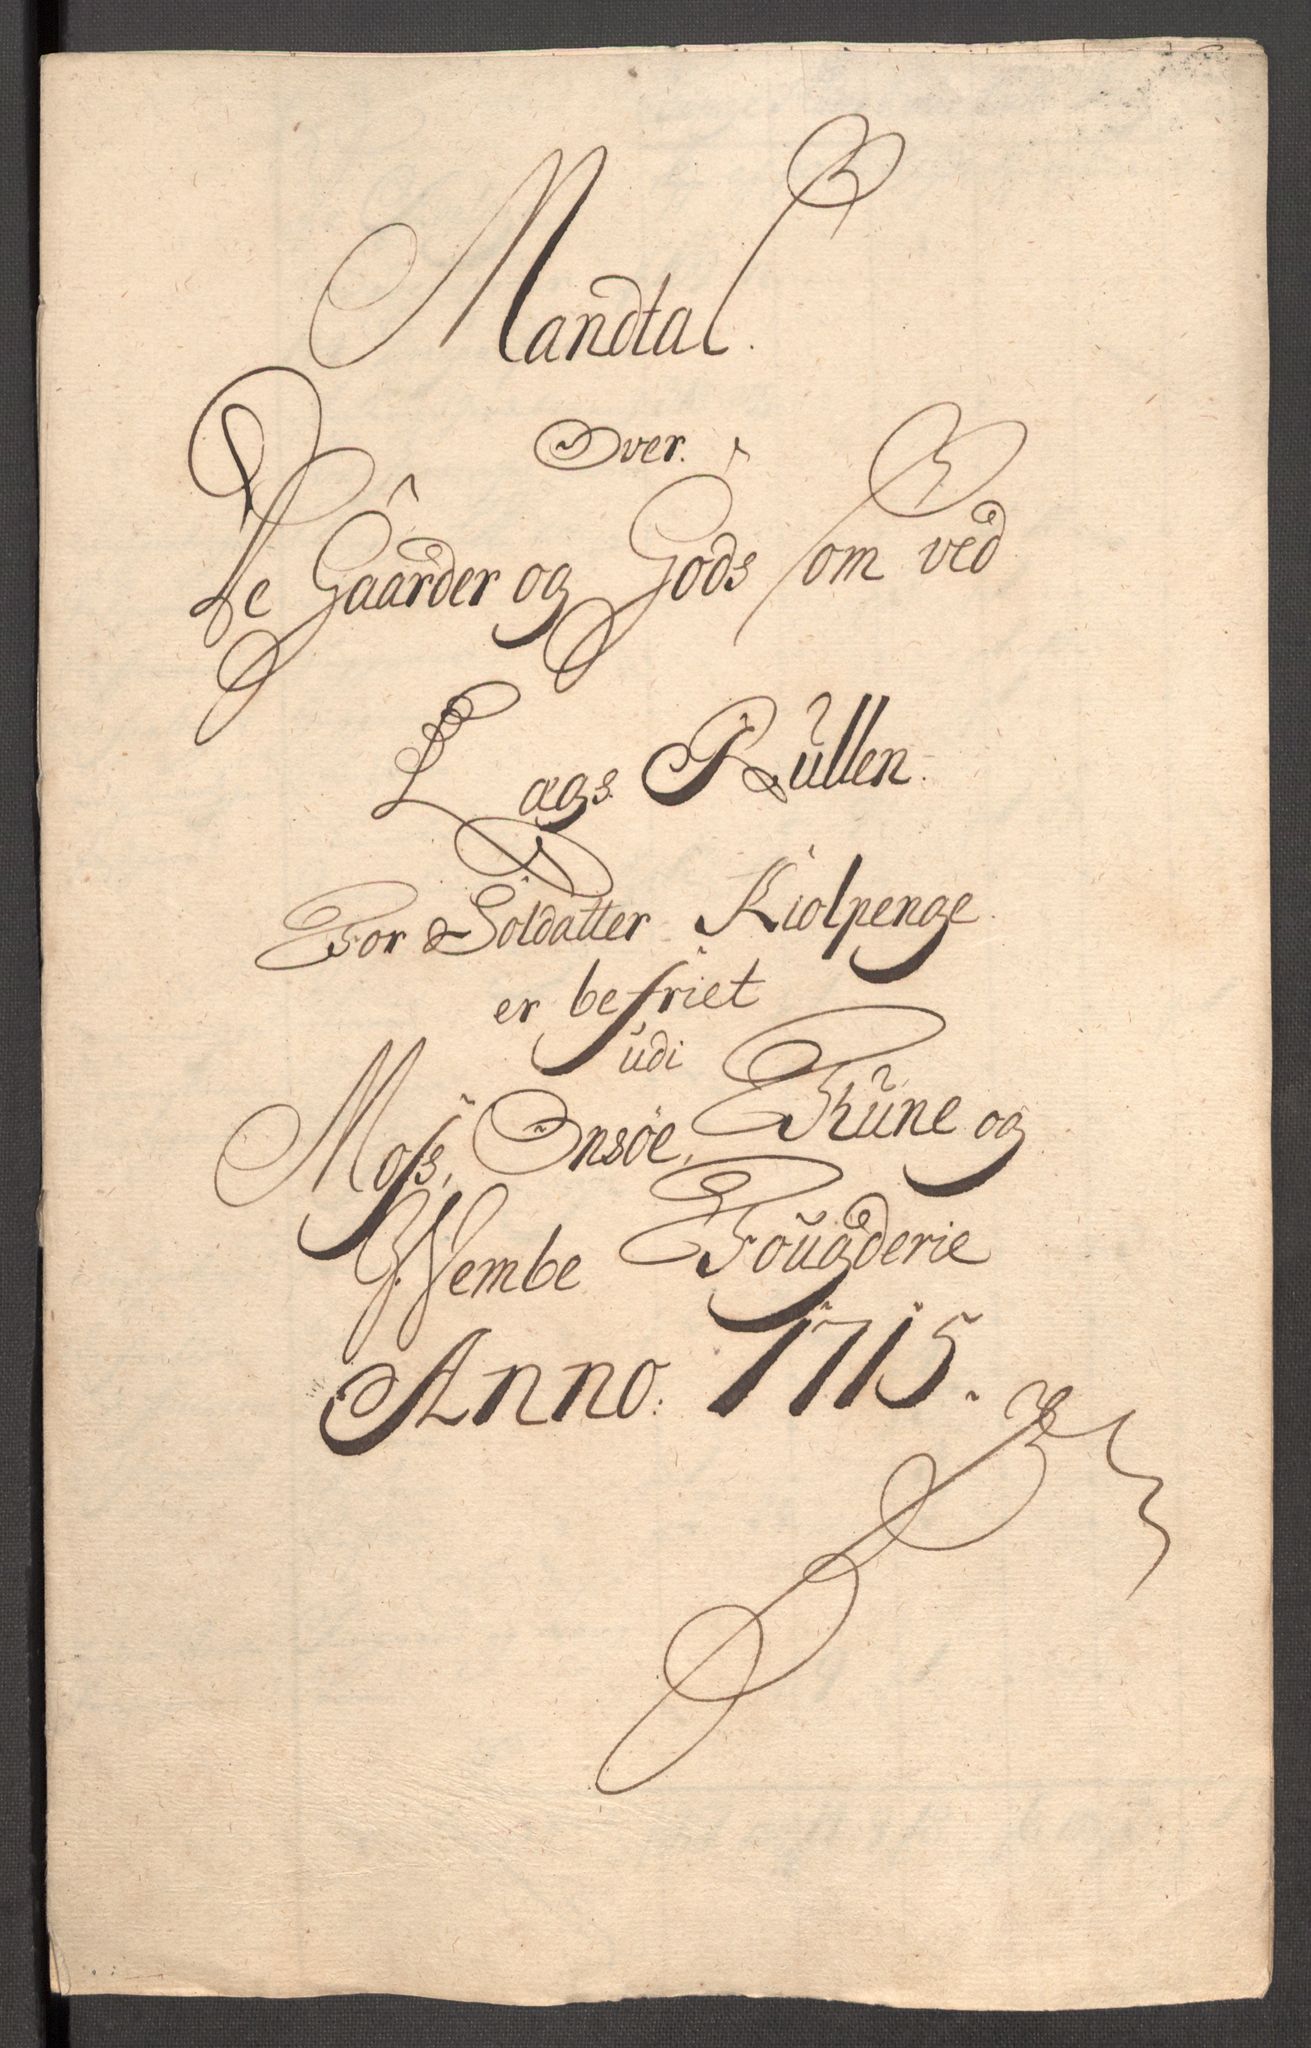 Mandtal.
Over.
De Gaarder og Gods som ved
Lægs Rullen.
For Soldatter Kiolpenge
er befriet
udi
Moss, Onsøe, Thune og
Wembe Fougderie
Anno: 1715.